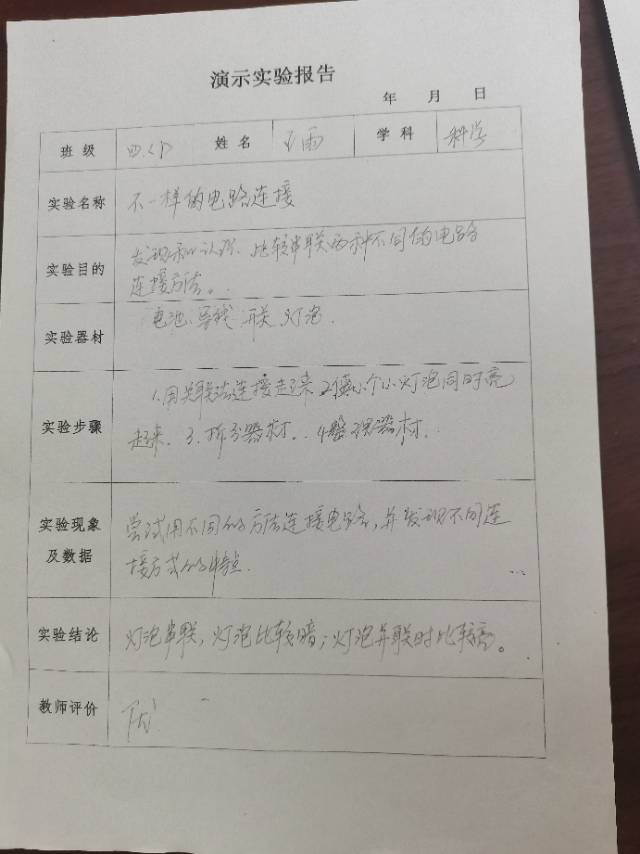 演示实验报告
年 月 日
班级 四.(1) 姓名 王雨 学科 科学
实验名称 不一样的电路连接
实验目的 发现和认识、比较串联两种不同的电路
连接方法。.
实验器材 电池、导线 开关 灯泡.
实验步骤 1.用关联法连接走起来 2.使小个小灯泡同时亮
起来. 3.拆分器材. 4整理器材.
实验现象及数据 尝试用不同的方法连接电路,并发现不同连
接方式的特点.
实验结论 灯泡串联,灯泡比较暗;灯泡并联时比较亮。
教师评价 优